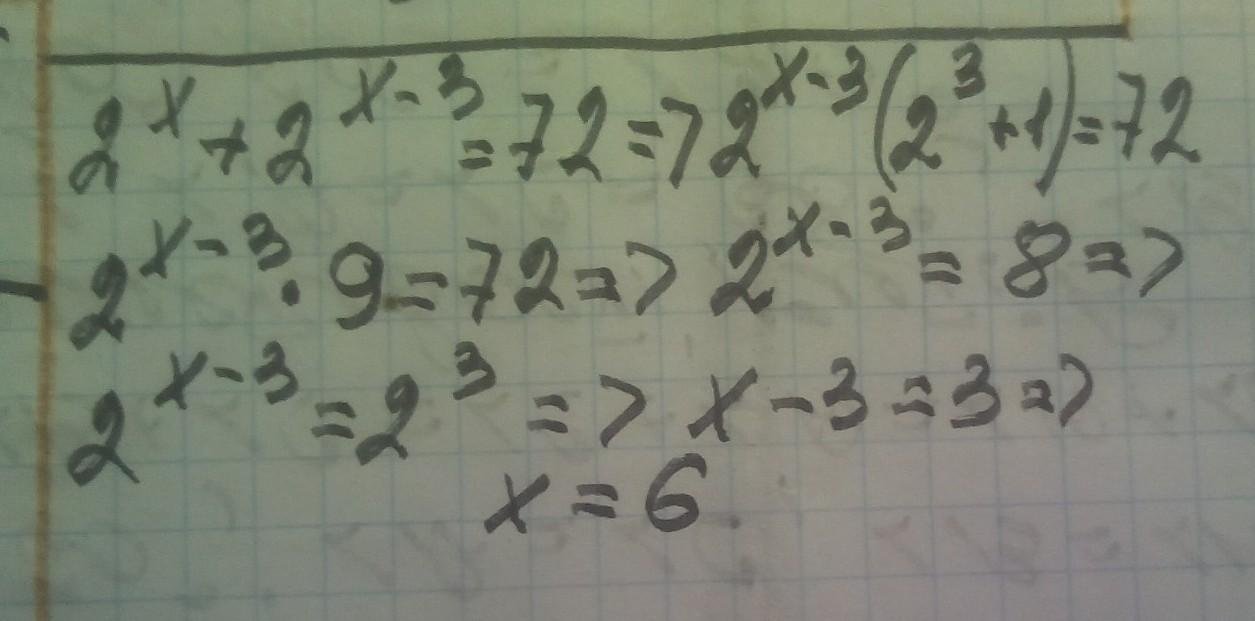 2^x + 2^{x-3} = 72 => 2^{x-3}(2^3 + 1) = 72
2^{x-3} · 9 = 72 => 2^{x-3} = 8 =>
2^{x-3} = 2^3 => x - 3 = 3 =>
x = 6